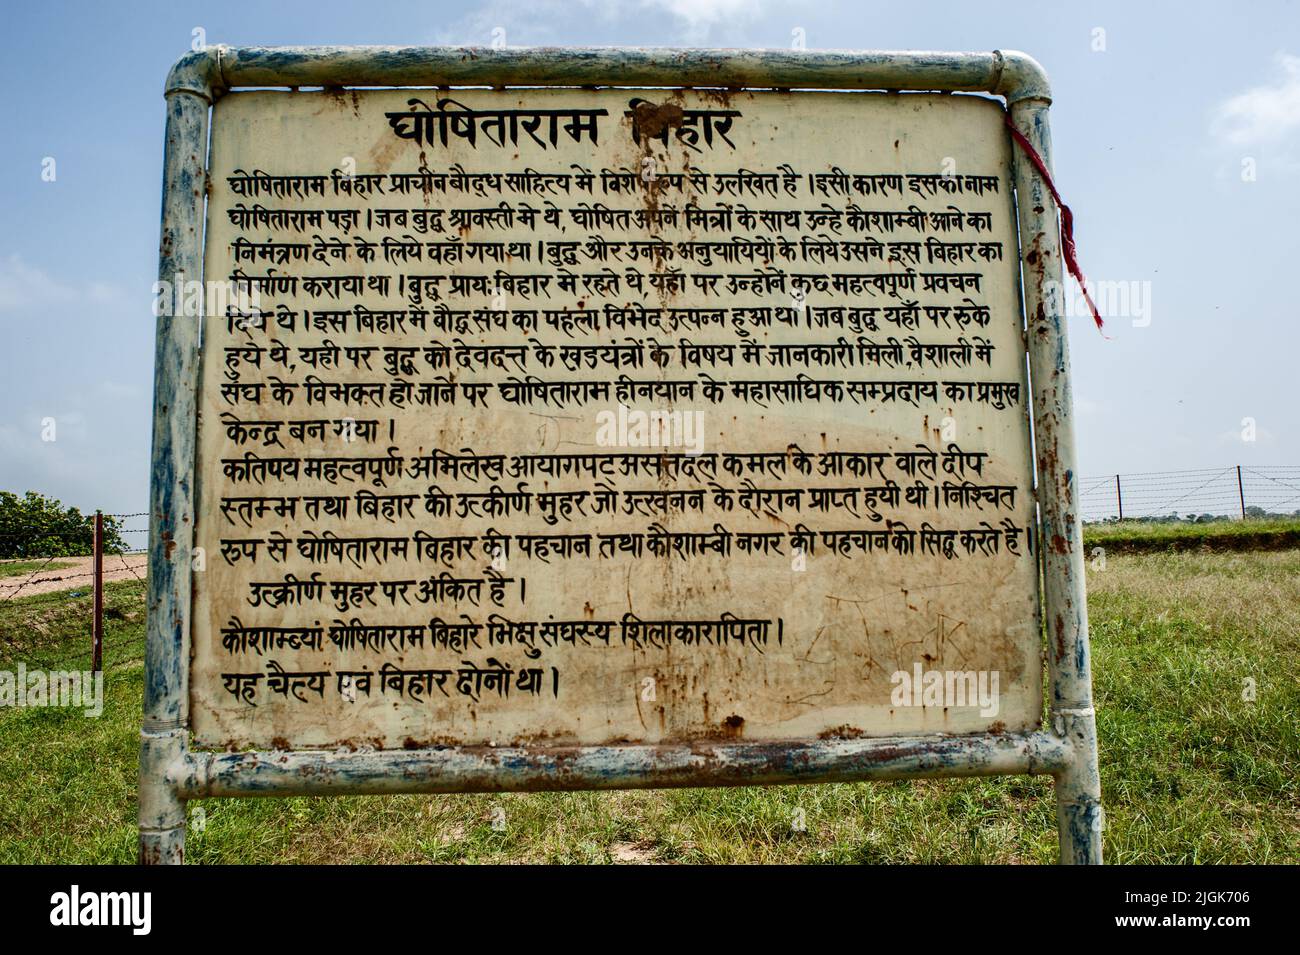 घोषिताराम बिहार
घोषिताराम बिहार प्राचीन बौद्ध साहित्य में विशेष रूप से उलखित है । इसी कारण इसका नाम
घोषिताराम पड़ा । जब बुद्ध श्रावस्ती मे थे, घोषित अपनें मित्रों के साथ उन्हे कौशाम्बी आने का
निमंत्रण देने के लिये वहाँ गया था । बुद्ध और उनके अनुयायियों के लिये उसने इस बिहार का
निर्माण कराया था । बुद्ध प्राय: बिहार मे रहते थे, यहाँ पर उन्होनें कुछ महत्वपूर्ण प्रवचन
दिये थे । इस बिहार में बौद्ध संघ का पहला विभेद उत्पन्न हुआ था । जब बुद्ध यहाँ पर रुके
हुये थे, यही पर बुद्ध को देवदत्त के खडयंत्रों के विषय में जानकारी मिली, वैशाली में
संघ के विभक्त हो जाने पर घोषिताराम हीनयान के महासाधिक सम्प्रदाय का प्रमुख
केन्द्र बन गया ।
कतिपय महत्वपूर्ण अभिलेख आयागपट् असतदल कमल के आकार वाले दीप
स्तम्भ तथा बिहार की उत्कीर्ण मुहर जो उत्खनन के दौरान प्राप्त हुयी थी । निश्चित
रूप से घोषिताराम बिहार की पहचान तथा कौशाम्बी नगर की पहचान को सिद्ध करते है ।
उत्कीर्ण मुहर पर अंकित है ।
कौशाम्ब्यां घोषिताराम बिहारे भिक्षु संघस्य शिलाकारापिता ।
यह चैत्य एवं बिहार दोनों था ।
alamy
Image ID: 2JGK706
www.alamy.com